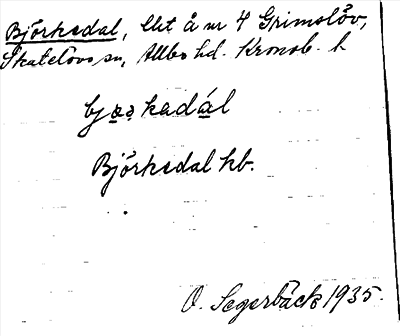 Björkedal, lht å nr 4 Grimslöv,
Skatelövs sn, Allbo hd. Kronob. l
Björkedal hb.
O. Segerbäck 1935.